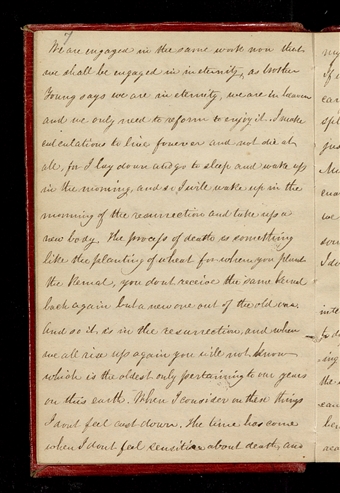 7
We are engaged in the same work now that
we shall be engaged in in eternity, as brother
Young says we are in eternity, we are in heaven
and we only need to reform to enjoy it. I make
calculations to live forever and not die at
all, for I lay down and go to sleep and wake up
in the morning, and so I will wake up in the
morning of the resurrection and take up a
new body. The process of death is something
like the planting of wheat for when you plant
the kernal, you dont receive the same kernal
back again but a new one out of the old one.
And so it is in the resurrection, and when
we all rise up again you will not know
which is the oldest only pertaining to our years
on this earth. When I consider on these things
I dont feel cast down. The time has come
when I dont feel sensitive about death, and